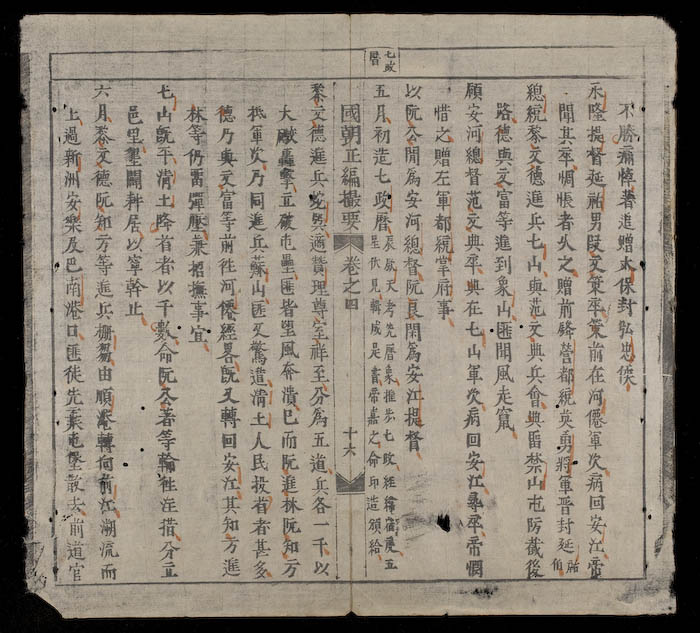 七政曆
不勝痛悼着追贈太保封弘忠侯
永隆提督延祐男段文策卒策前在河僊軍次病回安江帝
聞其卒惆悵者久之贈前鋒營都統英勇將軍晉封延祐伯
總統黎文德進兵七山與范文典兵會典留禁山屯防截後
路德與文富等進到象山匪聞風走竄
顧安河總督范文典卒典在七山軍次病回安江尋卒帝憫
惜之贈左軍都統掌府事
以阮公閒為安河總督阮良閑為安江提督
五月初造七政曆 辰欽天考先曆象推步七政經緯宿度五星伏見輯成是書帝嘉之命印造頒給
國朝正編撮要 卷之四 十六
黎文德進兵 與 贊理尊室祥至分為五道兵各一千以
大礮轟擊立破屯壘匪皆望風奔潰已而阮進林阮知方
抵軍次乃同進兵蘇山匪又驚遁清土人民投首者甚多
德乃與文富等前往河僊經畧既又轉回安江其知方進
林等仍畱彈壓兼招撫事宜
七山既平清土降首者以千數命阮公著等輪往 借分立
邑里墾闢耕居以寧幹止
六月黎文德阮知方等進兵 由順 轉向前江溯流而
上過新洲安樂及巴南港口匪徒先棄屯堡散去前道官